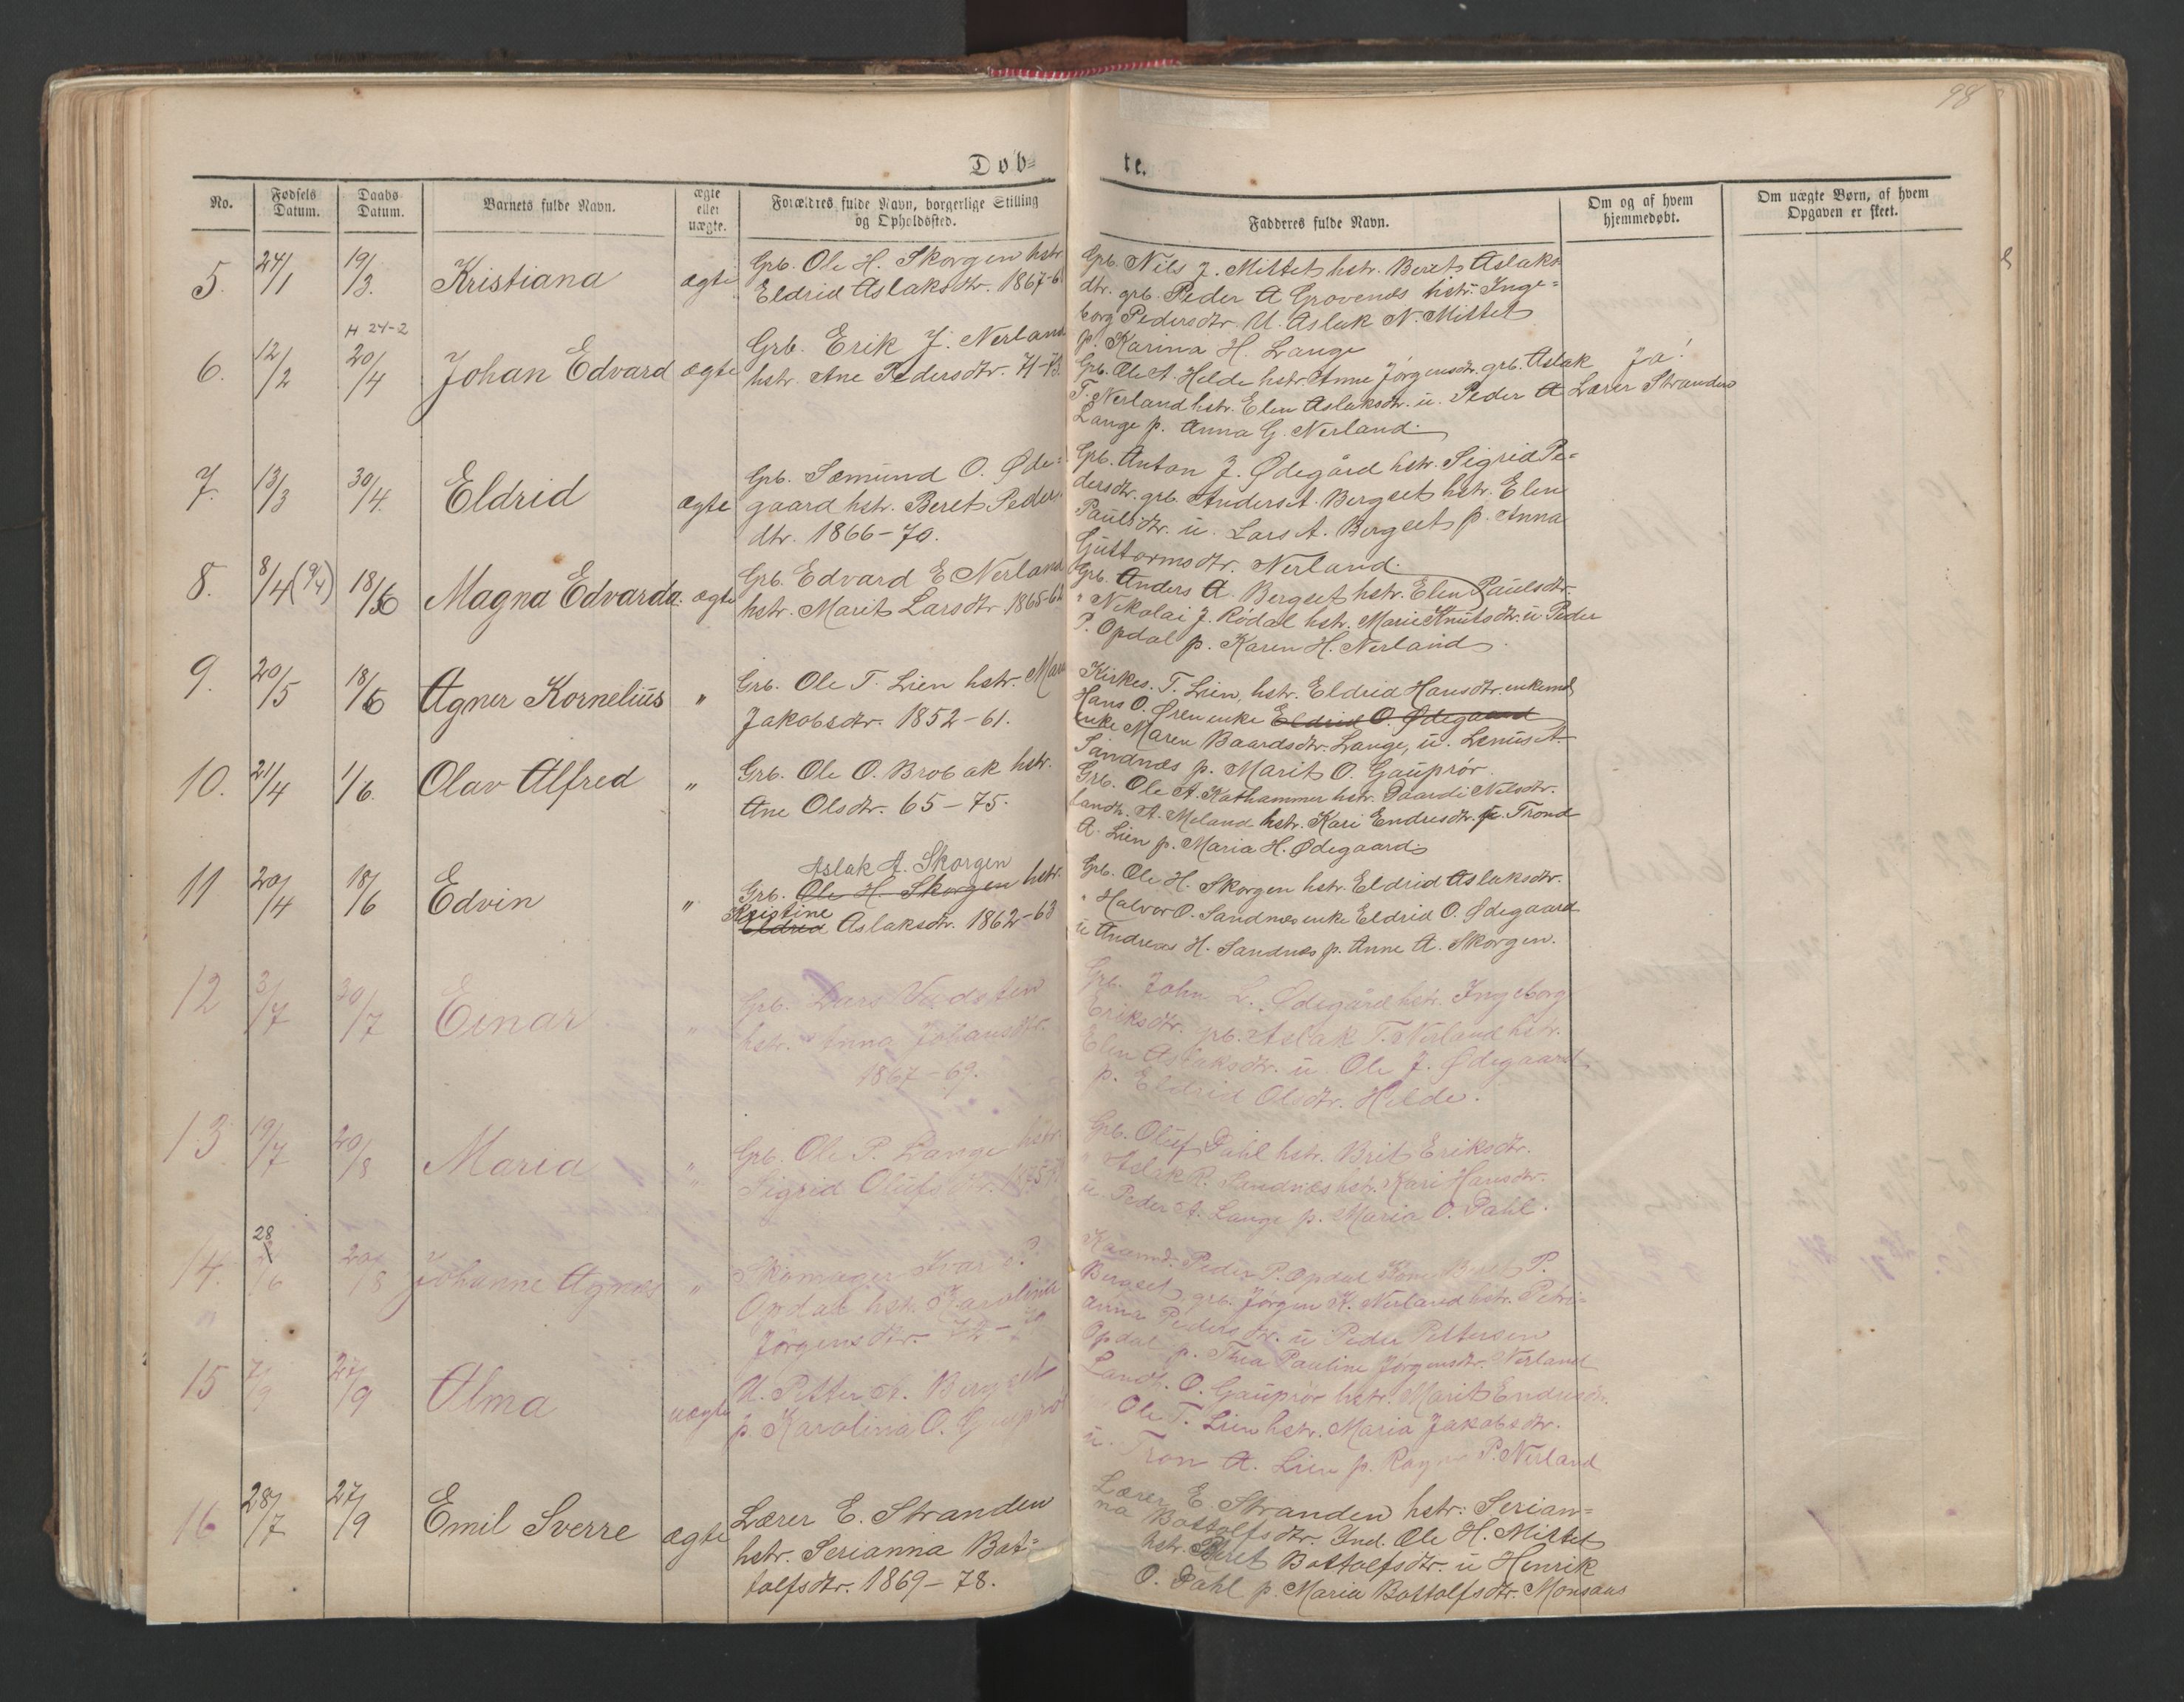 98
Døb= te.
No. Fødsels Datum. Daabs Datum. Barnets fulde Navn. ægte eller uægte. Forældres fulde Navn, borgerlige Stilling og Opholdssted. Fadderes fulde Navn. Om og af hvem hjemmedøbt. Om uægte Børn, af hvem Opgaven er skeet.
5. 24/1 19/3. Kristiana ægte
Grb. Ole H. Skorgen hstr.
Eldrid Aslaksdtr. 1867-6
Grb. Nils J. Mittet hstr. Beret Aslaks
dtr. grb. Peder A Grovenes hstr. Inge=
borg Pedersdtr. U. Aslak N. Mittet
p. Karina H. Lange
H 24-2
6. 12/2 20/4 Johan Edvard ægte
Grb. Erik J. Nerland
hstr. Ane Pedersdtr. 71-73.
Grb. Ole A. Helde hstr Anne Jörgensdtr. grb. Aslak Ja!
T. Nerland hstr. Elen Aslaksdtr. ü. Peder A Lærer Stranden
Lange p. Anna G. Nerland.
7. 13/3 30/4. Eldrid ægte
Grb. Sæmund O. Øde=
gaard hstr. Beret Peders
dtr. 1866-70.
Grb. Anton J. Ødegård hstr. Sigrid Pe=
dersdtr. grb. Anders A. Bergset hstr. Elen
Paulsdtr. ü. Lars A. Bergset p. Anna
Guttormsdtr. Nerland.
8. 8/4 (9/4) 18/6 Magna Edvarda. ægte
Grb. Edvard E Nerland
hstr. Marit Larsdtr 1865-62
Grb. Anders A. Bergset hstr. Elen Paulsdtr.
" Nikolai J. Rödal hstr. Marie Knutsdtr. ü Peder
P. Opdal p. Karen H. Nerland.
9. 20/5 18/6 Agner Kornelius "
Grb. Ole T. Lien hstr. Mar
Jakobsdtr. 1852-61.
Kirkes. T. Lien, hstr. Eldrid Hansdtr. enkemd
Hans O. Øren enke Eldrid O. Ødegaard
enke Maren Baardsdtr. Lange, ü. Lenus A.
Sandnes p. Marit O. Gauprör.
10. 21/4 1/6. Olav Alfred "
Grb. Ole O. Brobak hstr.
Ane Olsdtr. 65-75.
Grb. Ole A. Kathammer hstr. Paardi Nilsdtr.
Landh. A. Meland hstr. Kari Endresdtr. ü. Trond
A. Lien p. Maria H. Ødegaard.
11 20/4 18/6 Edvin "
Aslak A. Skorgen
Grb. Ole H. Skorgen hstr.
Kristine
Eldrid Aslaksdtr. 1862-63
Grb. Ole H. Skorgen hstr. Eldrid Aslaksdtr.
" Halvor O. Sandnes enke Eldrid O. Ødegaard
ü Andreas H. Sandnes p. Anne A. Skorgen.
12 3/7 30/7 Einar "
Grb. Lars Vedsten
hstr. Anna Johansdtr.
1867-69.
Grb. John L. Ødegård hstr. Ingeborg
Eriksdtr. grb. Aslak T. Nerland hstr.
Elen Aslaksdtr. ü. Ole J. Ødegaard
p. Eldrid Olsdtr. Helde.
13 19/7 20/8 Maria "
Grb. Ole P. Lange hstr.
Sigrid Olufsdtr. 1875
Grb. Oluf Dahl hstr. Brit Eriksdtr.
" Aslak R. Sandnes hstr. Kari Hansdtr.
ü Peder A. Lange p. Maria O. Dahl.
28
14. /6 20/8 Johanne Agnes "
Skomager Ivar P.
Opdal hstr. Karoline
Jörgensdtr. 72-70
Kaarmd. Peder P. Opdal Kone Beret P.
Bergset, grb. Jörgen K. Nerland hstr. Petri=
anna Pedersdtr. ü Peder Pettersen
Opdal p. Thea Pauline Jörgensdtr. Nerland
15 7/9 27/9 Alma uægte
U. Petter A. Bergset
p Karolina O. Gauprör
Landh. O. Gauprör hstr. Marit Endresdtr.
" Ole T. Lien hstr. Maria Jakobsdtr.
ü. Tron A. Lien p. Ragna P. Nerland
16 28/7 27/9 Emil Sverre ægte
Lærer E. Stranden
hstr. Serianna Bot=
tolfsdtr. 1869-78.
Lærer E. Stranden hstr: Serian=
na Bottolfsdtr. Ind. Ole H. Mittet
hstr. Beret Bottolfsdtr. ü Henrik
O. Dahl p. Maria Bottolfsdtr. Monsaas